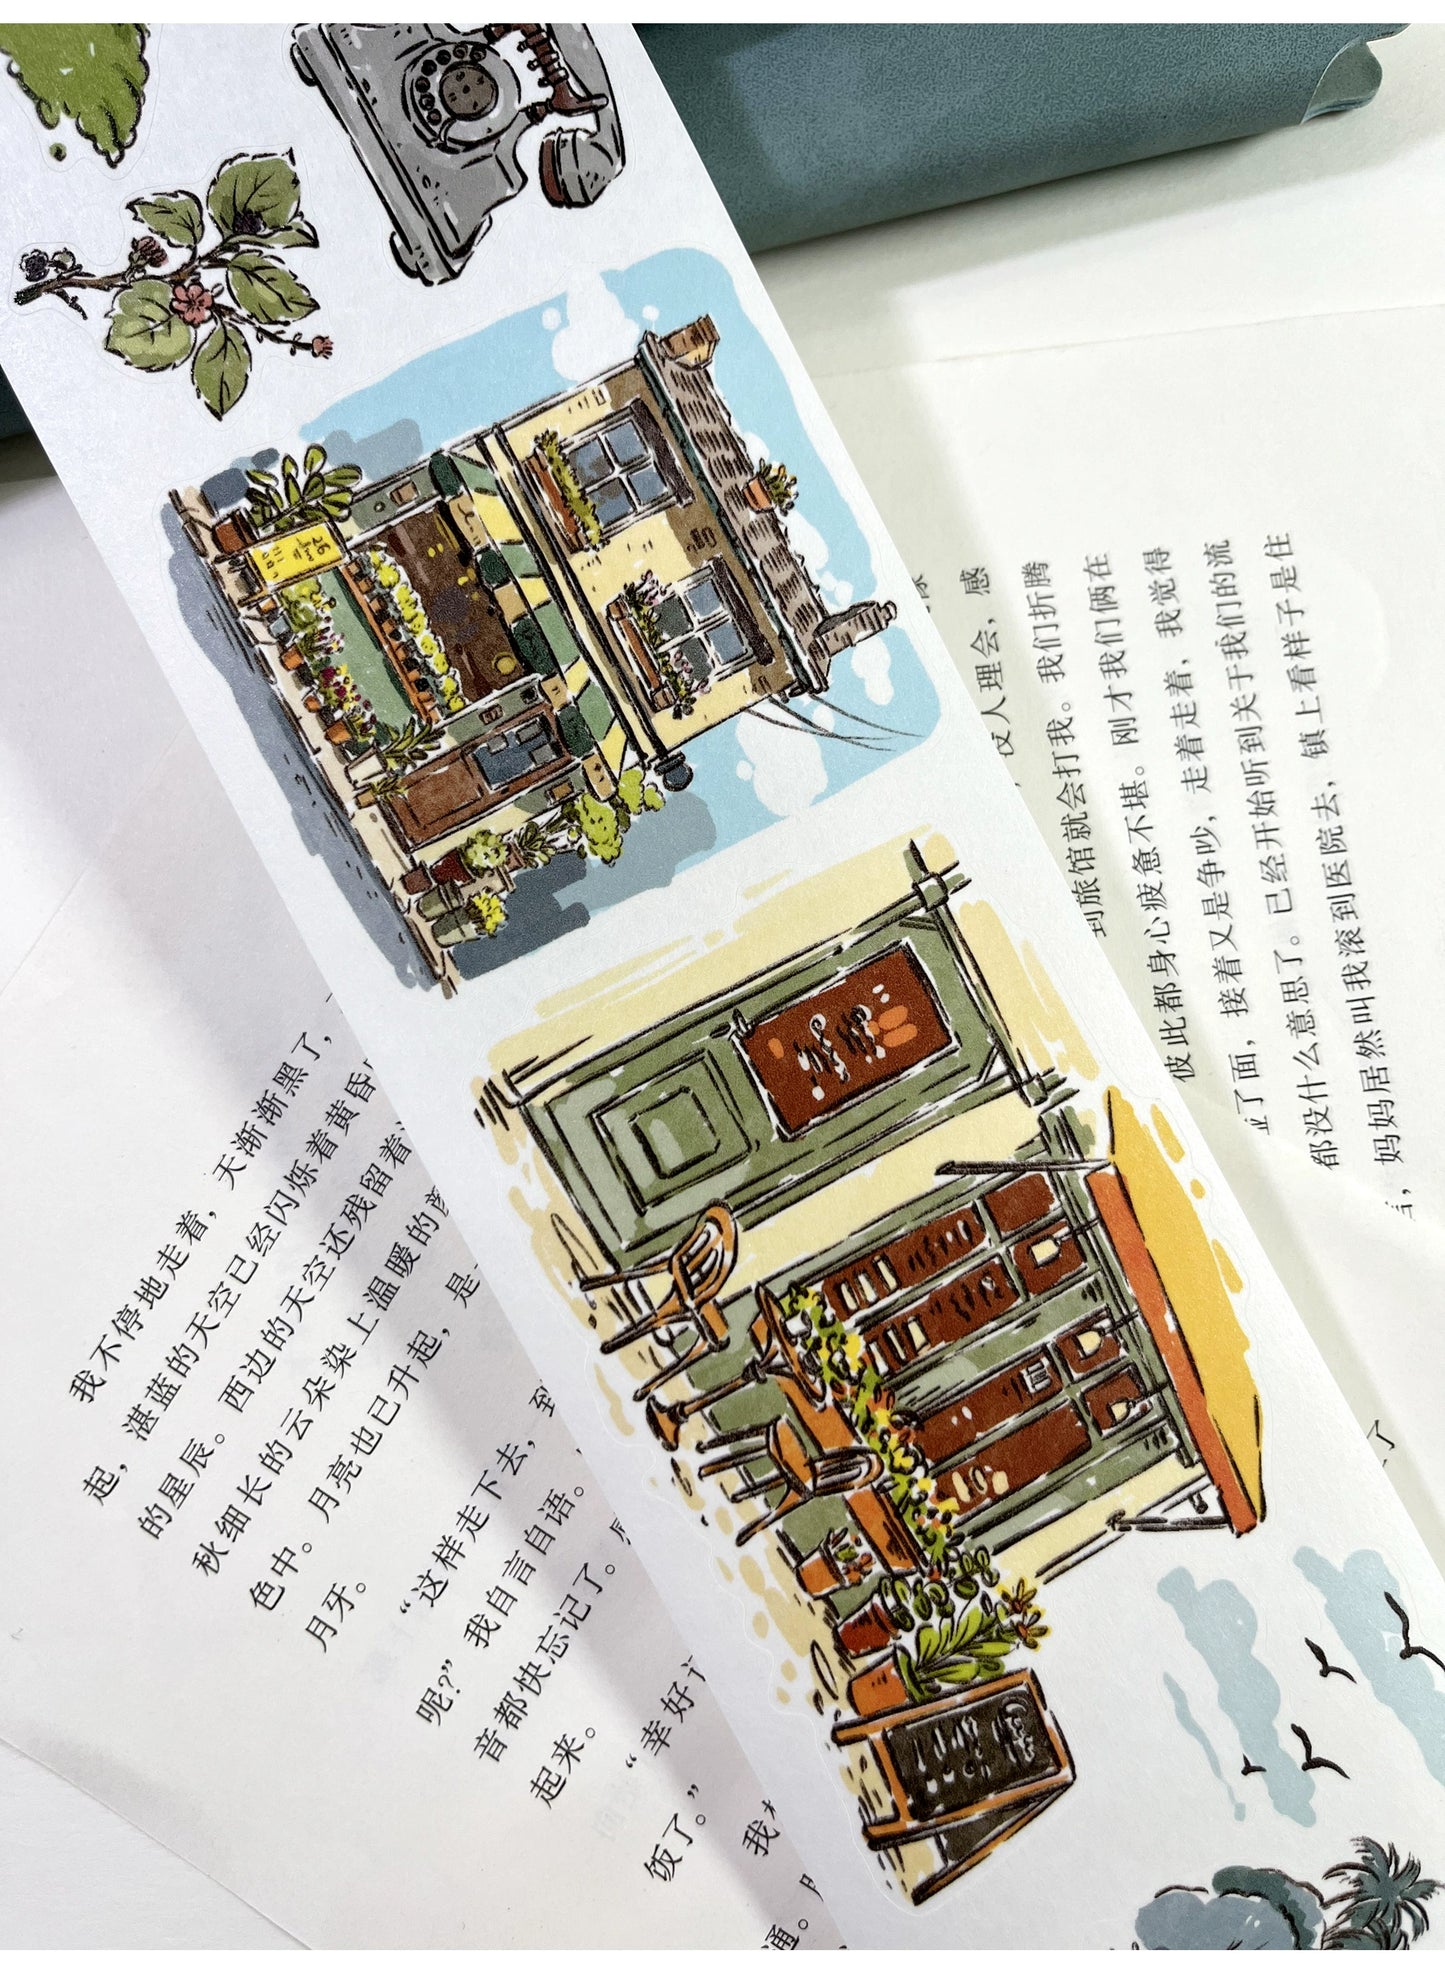 我不停地走着，天渐渐黑了，
起，湛蓝的天空已经闪烁着黄昏
的星辰。西边的天空还残留着
秋细长的云朵染上温暖的颜
色中。月亮也已升起，是
月牙。
“这样走下去，到
呢？”我自言自语。
音都快忘记了。
起来。
“幸好
饭了。”
我
通。月
理会，感
到旅馆就会打我。我们折腾
彼此都身心疲惫不堪。刚才我们俩在
了面，接着又是争吵，走着走着，我觉得
都没什么意思了。已经开始听到关于我们的流
言，妈妈居然叫我滚到医院去，镇上看样子是住
了